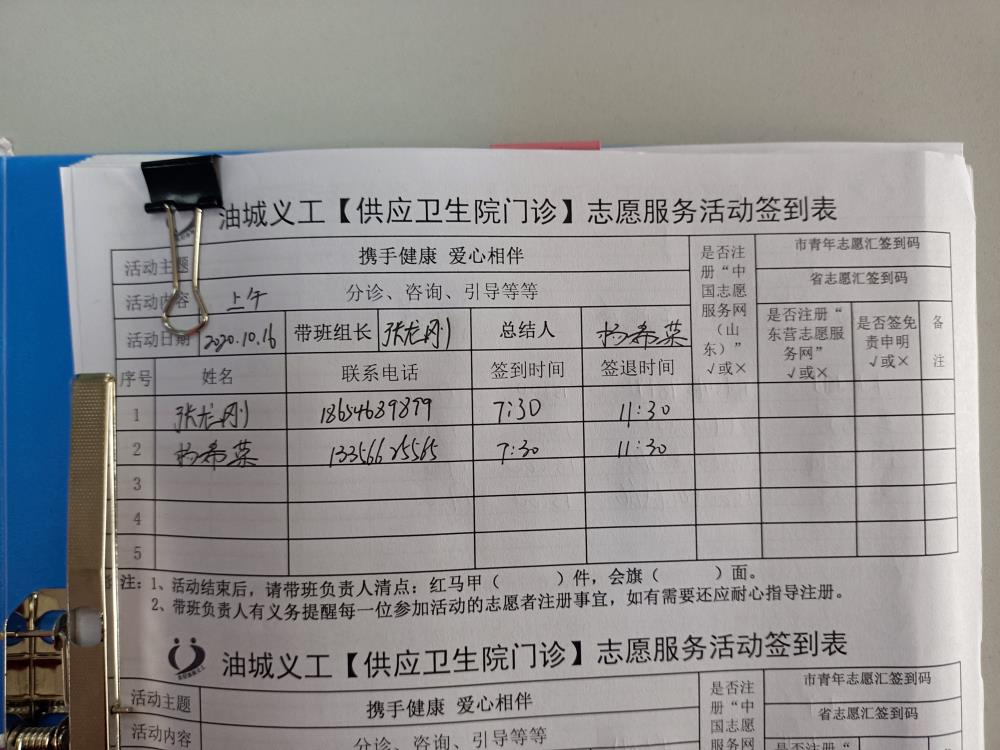 油城义工【供应卫生院门诊】志愿服务活动签到表
活动主题 携手健康 爱心相伴 是否注册“中国志愿服务网（山东）”√或× 市青年志愿汇签到码
省志愿汇签到码
活动内容 上午 分诊、咨询、引导等等
活动日期 2020.10.16 带班组长 张龙刚 总结人 杨希菜 是否注册“东营志愿服务网”√或× 是否签免责申明√或× 备注
序号 姓名 联系电话 签到时间 签退时间
1 张龙刚 18654689879 7:30 11:30
2 杨希菜 13356625565 7:30 11:30
3
4
5
注：1、活动结束后，请带班负责人清点：红马甲（ ）件，会旗（ ）面。
2、带班负责人有义务提醒每一位参加活动的志愿者注册事宜，如有需要还应耐心指导注册。
油城义工【供应卫生院门诊】志愿服务活动签到表
活动主题 携手健康 爱心相伴 是否注册“中国志愿服务网 市青年志愿汇签到码
省志愿汇签到码
活动内容 分诊、咨询、引导等等 是否注册“